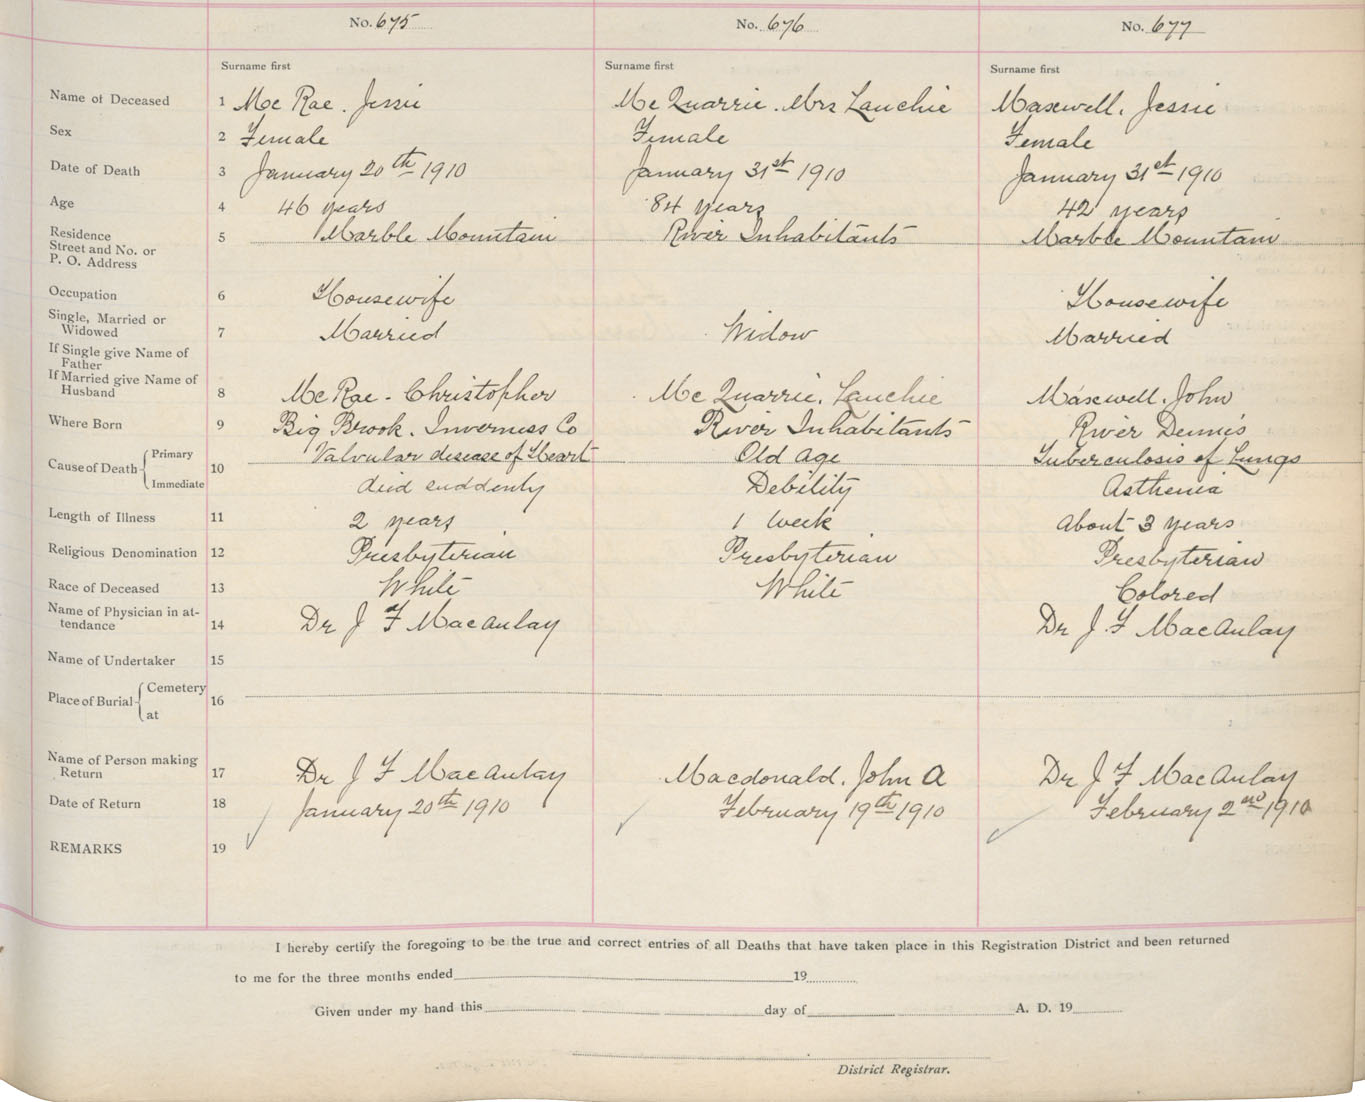 No. 675 No. 676 No. 677
Surname first Surname first Surname first
Name of Deceased 1 Mc Rae. Jessie Mc Quarrie. Mrs Lauchie Maxwell. Jessie
Sex 2 Female Female Female
Date of Death 3 January 20th 1910 January 31st 1910 January 31st 1910
Age 4 46 years 84 years 42 years
Residence
Street and No. or 5 Marble Mountain River Inhabitants Marble Mountain
P. O. Address
Occupation 6 Housewife Housewife
Single, Married or
Widowed 7 Married Widow Married
If Single give Name of
Father
If Married give Name of
Husband 8 Mc Rae - Christopher Mc Quarrie. Lauchie Maxwell. John
Where Born 9 Big Brook. Inverness Co River Inhabitants River Dennis
Cause of Death Primary 10 Valvular disease of Heart Old age Tuberculosis of Lungs
Immediate died suddenly Debility Asthenia
Length of Illness 11 2 years 1 week About 3 years
Religious Denomination 12 Presbyterian Presbyterian Presbyterian
Race of Deceased 13 White White Colored
Name of Physician in at-
tendance 14 Dr J F MacAulay Dr J. F MacAulay
Name of Undertaker 15
Place of Burial Cemetery 16
at
Name of Person making
Return 17 Dr J F MacAulay Macdonald. John A Dr J F MacAulay
Date of Return 18 January 20th 1910 February 19th 1910 February 2nd 1910
REMARKS 19
I hereby certify the foregoing to be the true and correct entries of all Deaths that have taken place in this Registration District and been returned
to me for the three months ended 19
Given under my hand this day of A. D. 19
District Registrar.